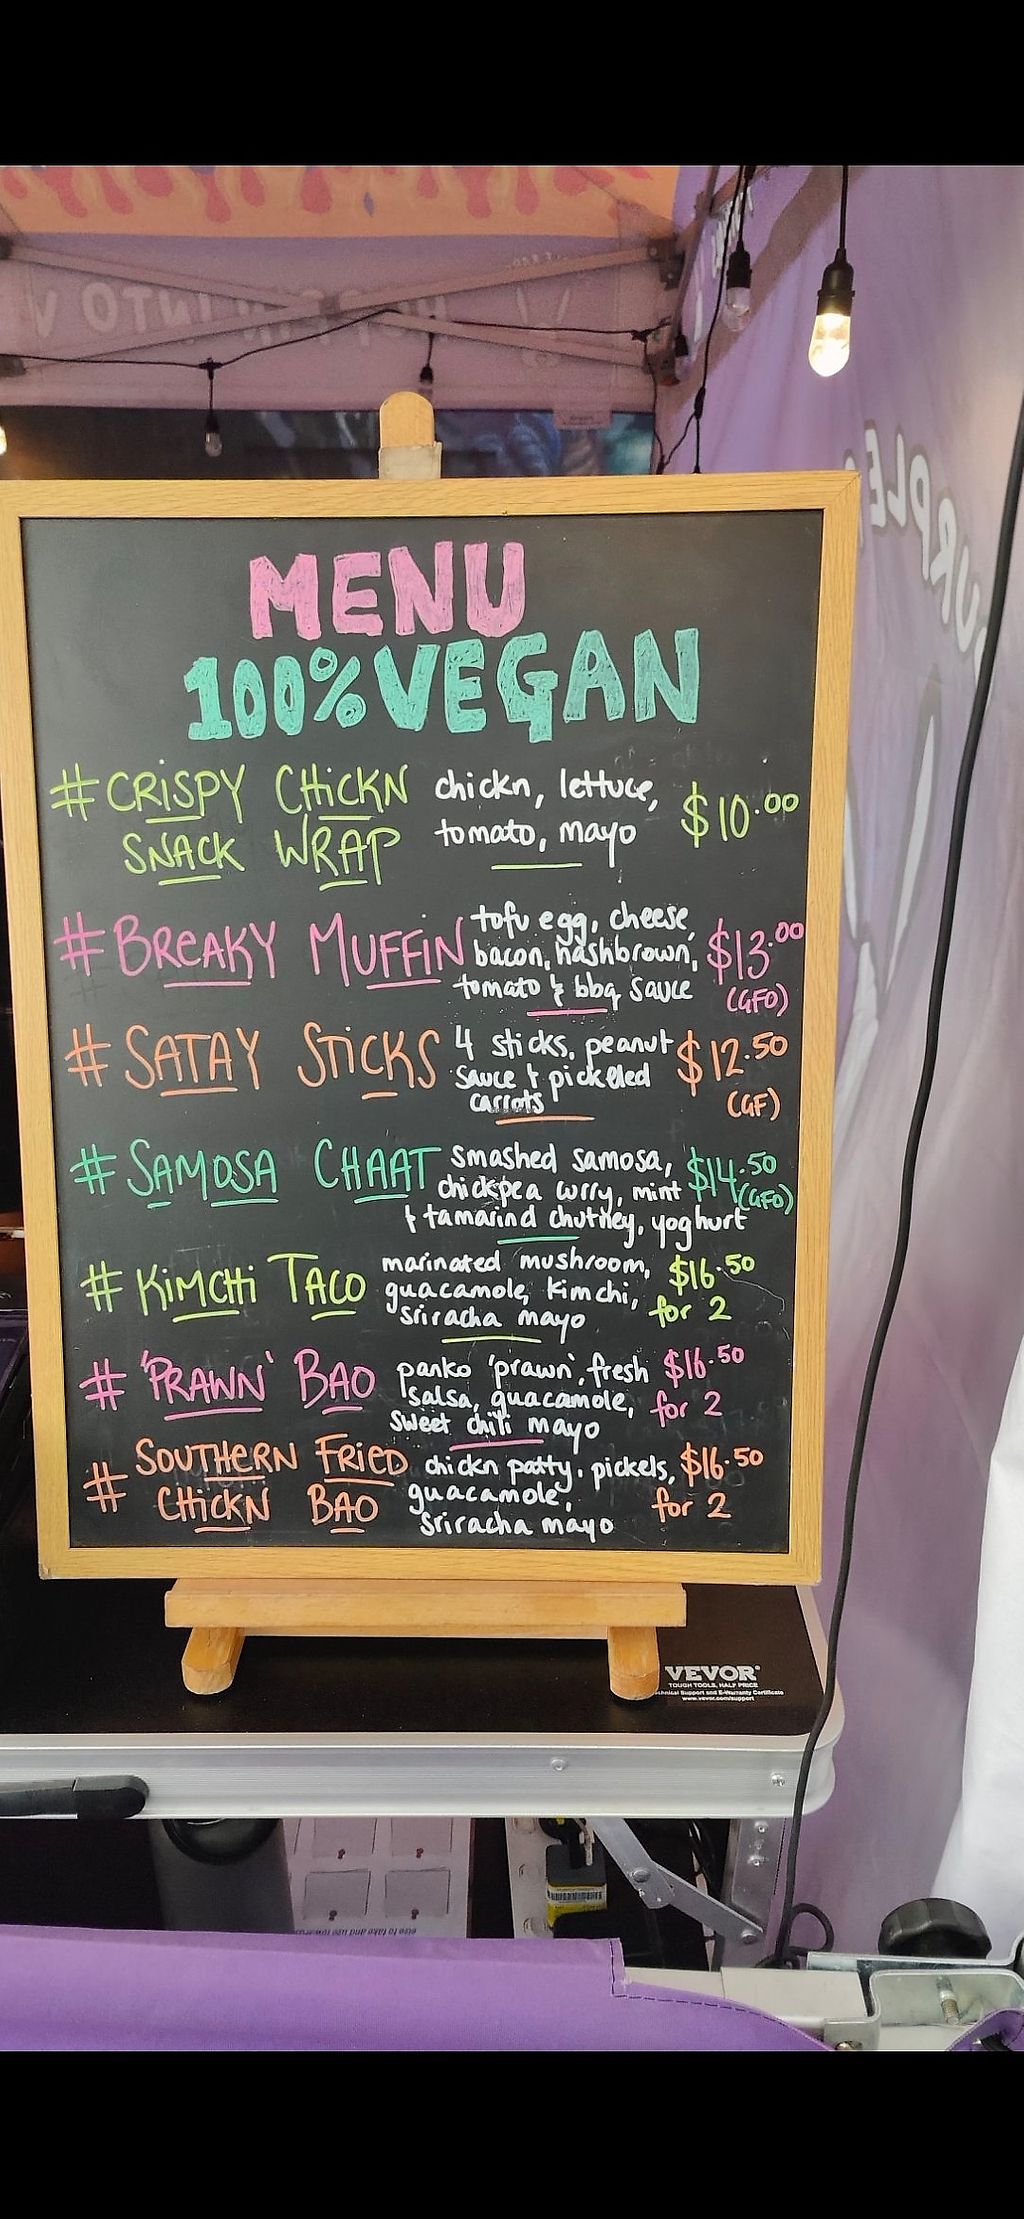 MENU
100% VEGAN
# CRISPY CHICKN chickn, lettuce, $10.00
SNACK WRAP tomato, mayo
# BREAKY MUFFIN tofu egg, cheese, $13.00
bacon, hashbrown,
tomato & bbq sauce (GFO)
# SATAY STICKS 4 sticks, peanut $12.50
sauce & pickelled
carrots (GF)
# SAMOSA CHAAT smashed samosa, $14.50
chickpea curry, mint (GFO)
& tamarind chutney, yoghurt
# KIMCHI TACO marinated mushroom, $16.50
guacamole, kimchi, for 2
sriracha mayo
# 'PRAWN' BAO panko 'prawn', fresh $16.50
salsa, guacamole, for 2
sweet chili mayo
# SOUTHERN FRIED chickn patty, pickels, $16.50
CHICKN BAO guacamole, for 2
sriracha mayo
VEVOR
TOUGH TOOLS, HALF PRICE
Technical Support and E-Warranty Certificate
www.vevor.com/support